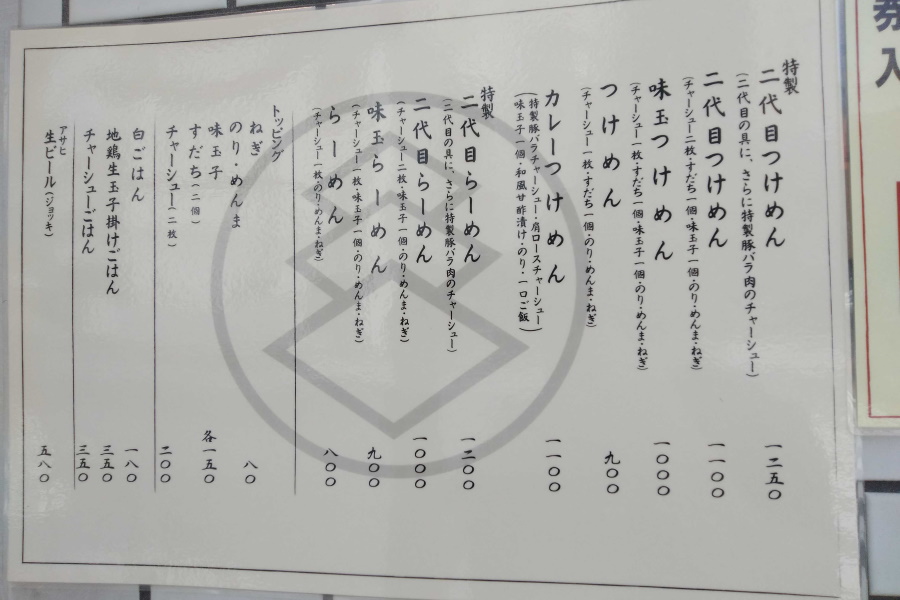 特製
二代目つけめん
(二代目の具に、さらに特製豚バラ肉のチャーシュー)
一二五〇
二代目つけめん
(チャーシュー二枚・すだち一個・味玉子一個・のり・めんま・ねぎ)
一一〇〇
味玉つけめん
(チャーシュー一枚・すだち一個・味玉子一個・のり・めんま・ねぎ)
一〇〇〇
つけめん
(チャーシュー一枚・すだち一個・のり・めんま・ねぎ)
九〇〇
カレーつけめん
(特製豚バラチャーシュー・肩ロースチャーシュー)
(味玉子一個・和風甘酢漬け・のり・一口ご飯)
一一〇〇
特製
二代目らーめん
(二代目の具に、さらに特製豚バラ肉のチャーシュー)
一二〇〇
二代目らーめん
(チャーシュー二枚・味玉子一個・のり・めんま・ねぎ)
一〇〇〇
味玉らーめん
(チャーシュー一枚・味玉子一個・のり・めんま・ねぎ)
九〇〇
らーめん
(チャーシュー一枚・のり・めんま・ねぎ)
八〇〇
トッピング
ねぎ
八〇
のり・めんま
味玉子
すだち(二個)
各一五〇
チャーシュー(二枚)
二〇〇
白ごはん
一八〇
地鶏生玉子掛けごはん
三五〇
チャーシューごはん
三五〇
アサヒ
生ビール(ジョッキ)
五八〇
券
入